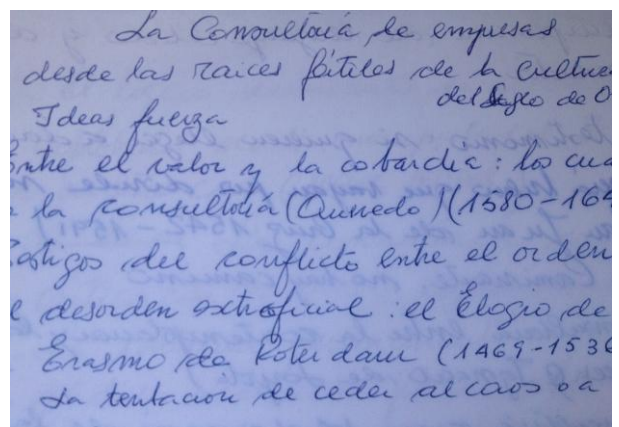 La Consultoría de empresas
desde las raices fértiles de la Cultu
del Siglo de O
Ideas fuerza
Entre el valor y la cobardia: los cua
la consultoría (Quevedo) (1580-164
estigos del conflicto entre el orden
desorden extraoficial: el Elogio de
Erasmo de Roterdam (1469-1536
La tentacion de ceder al caos o a